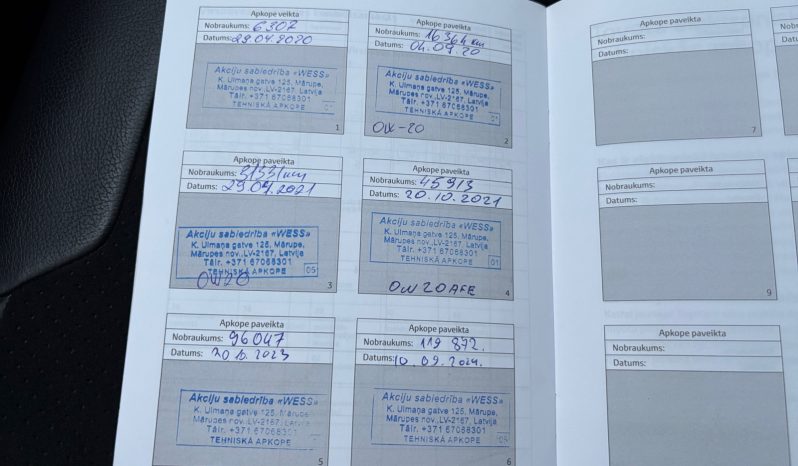 Apkope veikta
Nobraukums: 6307
Datums: 29.04.2020
Akciju sabiedrība «WESS»
K. Ulmaņa gatve 125, Mārupe,
Mārupes nov.,LV-2167, Latvija
Tālr. +371 67068301
TEHNISKĀ APKOPE
1
Apkope paveikta
Nobraukums: 16364 km
Datums: 04.09.20
Akciju sabiedrība «WESS»
K. Ulmaņa gatve 125, Mārupe,
Mārupes nov.,LV-2167, Latvija
Tālr. +371 67068301
TEHNISKĀ APKOPE 01
OW-20
2
Apkope paveikta
Nobraukums: 31331 km
Datums: 29.04.2021
Akciju sabiedrība «WESS»
K. Ulmaņa gatve 125, Mārupe,
Mārupes nov.,LV-2167, Latvija
Tālr. +371 67068301
TEHNISKĀ APKOPE 05
OW20
3
Apkope paveikta
Nobraukums: 45913
Datums: 20.10.2021
Akciju sabiedrība «WESS»
K. Ulmaņa gatve 125, Mārupe,
Mārupes nov.,LV-2167, Latvija
Tālr. +371 67068301
TEHNISKĀ APKOPE 01
OW20 AFE
4
Apkope paveikta
Nobraukums: 96047
Datums:
Akciju sabiedrība «WESS»
K. Ulmaņa gatve 125, Mārupe
Mārupes nov.,LV-2167, Latvija
Tālr. +371 67068301
TEHNISKĀ APKOPE
5
Apkope paveikta
Nobraukums: 119 872.
Datums: 10.09.2024.
Akciju sabiedrība «WESS»
K. Ulmaņa gatve 125, Mārupe,
Mārupes nov.,LV-2167, Latvija
Tālr. +371 67068301
TEHNISKĀ APKOPE 05
6
Apkope paveikta
Nobraukums:
Datums:
7
Apkope paveikta
Nobraukums:
Datums:
9
Apkope paveikta
Nobraukums:
Datums: